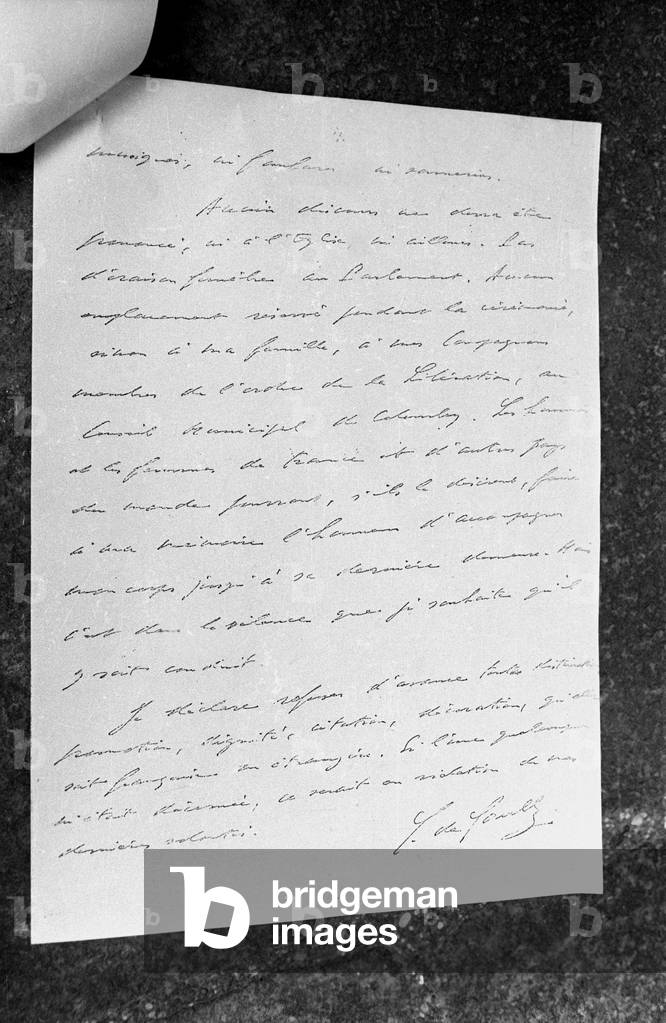 musiques, ni fanfares ni sonneries.
Aucun discours ne devra être
prononcé, ni à l'Eglise ni ailleurs. Pas
d'oraison funèbre au Parlement. Aucun
emplacement réservé pendant la cérémonie,
sinon à ma famille, à mes Compagnons
membres de l'ordre de la Libération, au
Conseil Municipal de Colombey. Les hommes
et les femmes de France et d'autres pays
du monde pourront, s'ils le désirent, faire
à ma mémoire l'honneur d'accompagner
mon corps jusqu'à sa dernière demeure. Mais
c'est dans le silence que je souhaite qu'il
y soit conduit.
Je déclare refuser d'avance toute distinction
promotion, dignité, citation, décoration, qu'elle
soit française ou étrangère. Si l'une quelconque
m'était décernée, ce serait en violation de mes
dernières volontés.
C. de Gaulle.
bridgeman
images